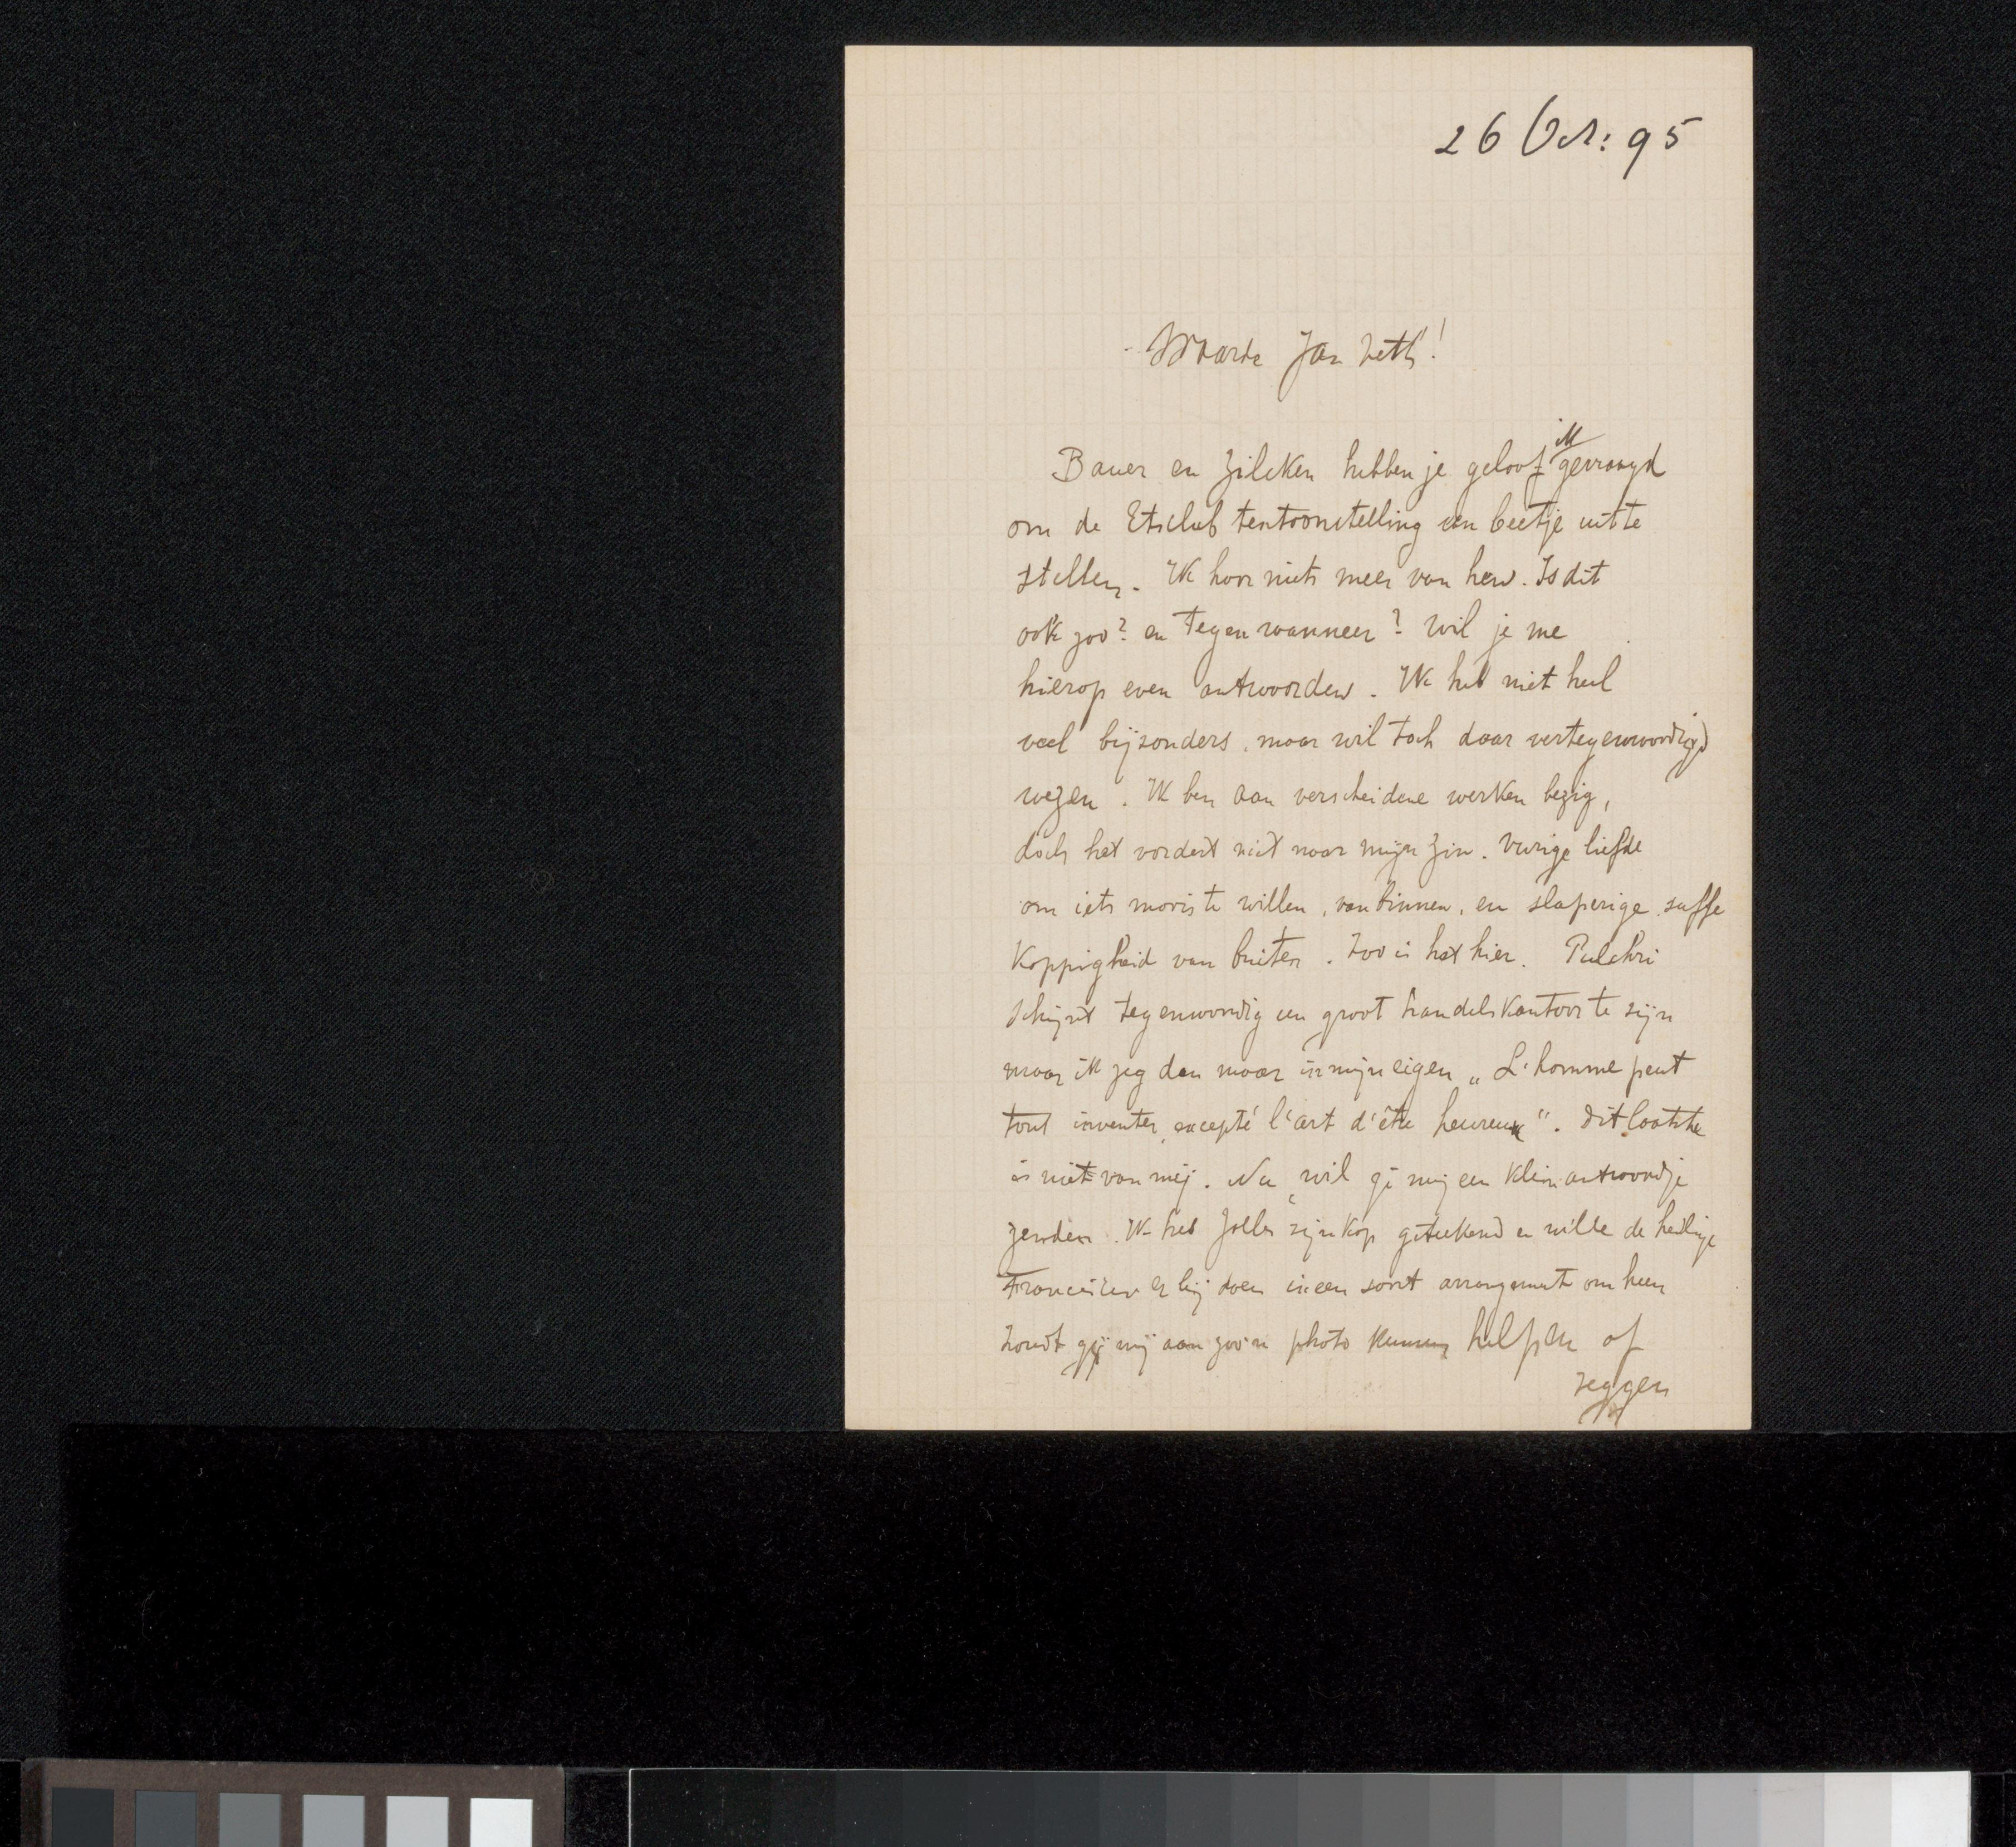 26 Oct: 95
Waarde Jan Veth!
Bauer en Zilcken hebben je geloof ik gevraagd
om de Etsclub tentoonstelling een beetje uit te
stellen. Ik hoor niets meer van hen. Is dit
ook zoo? en tegen wanneer? Wil je me
hierop even antwoorden. Ik heb niet heel
veel bijzonders, maar wil toch daar vertegenwoordigd
wezen. Ik ben aan verscheidene werken bezig,
doch het vordert niet naar mijn zin. Vurige liefde
om iets moois te willen, van binnen, en slaperige suffe
koppigheid van buiten. Zoo is het hier. Pulchri
schijnt tegenwoordig een groot handelskantoor te zijn
maar ik zeg dan maar in mijn eigen „L'homme peut
tout inventer, excepté l'art d'être heureux“. Dit laatste
is niet van mij. Nu, wil gij mij een klein antwoordje
zenden. Ik heb Jolles zijn kop geteekend en wilde de heilige
Franciscus er bij doen in een soort arrangement om heen
Zoudt gij mij aan zoo'n photo kunnen helpen of
zeggen